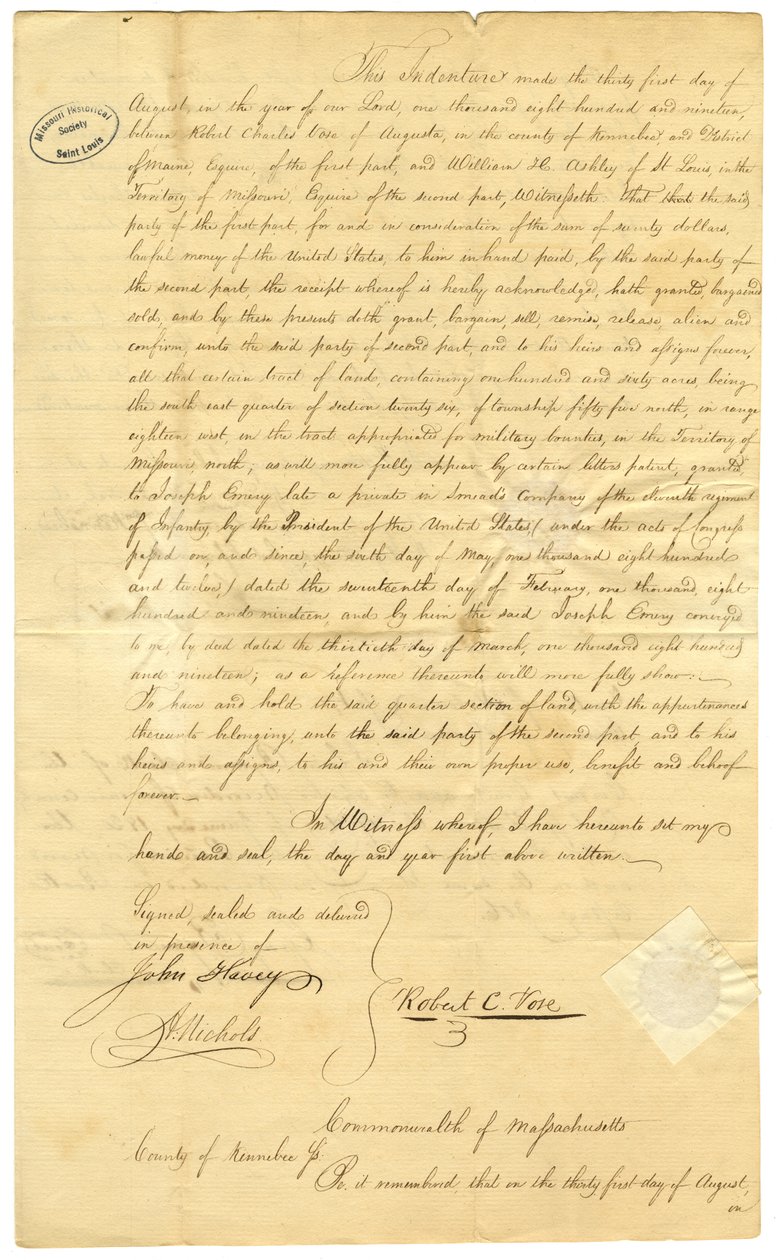 Missouri Historical
Society
Saint Louis
This Indenture made the thirty first day of
August, in the year of our Lord, one thousand eight hundred and nineteen,
between Robert Charles Vose of Augusta, in the county of Kennebec and District
of Maine, Esquire, of the first part, and William H. Ashley of St Louis, in the
Territory of Missouri, Esquire of the second part, Witnesseth: That that the said
party of the first part, for and in consideration of the sum of seventy dollars,
lawful money of the United States, to him in hand paid, by the said party of
the second part, the receipt whereof is hereby acknowledged, hath granted, bargained
sold, and by these presents doth grant, bargain, sell, remise, release, alien and
confirm, unto the said party of second part, and to his heirs and assigns forever,
all that certain tract of land, containing one hundred and sixty acres, being
the south east quarter of section twenty six, of township fifty five north, in range
eighteen west, in the tract appropriated for military bounties, in the Territory of
Missouri, north; as will more fully appear by certain letters patent, granted
to Joseph Emery late a private in Smead's Company of the eleventh regiment
of Infantry, by the President of the United States, (under the acts of Congress
passed on, and since, the sixth day of May, one thousand eight hundred
and twelve,) dated the seventeenth day of February, one thousand, eight
hundred and nineteen, and by him the said Joseph Emery conveyed
to me, by deed dated the thirtieth day of march, one thousand eight hundred
and nineteen; as a reference thereunto will more fully show:—
To have and hold the said quarter section of land, with the appurtenances
thereunto belonging, unto the said party of the second part, and to his
heirs and assigns, to his and their own proper use, benefit and behoof
forever.—
In Witness whereof, I have hereunto set my
hand and seal, the day and year first above written.—
Signed, sealed and delivered
in presence of
John Havey
A. Nichols
Robert C. Vose
Commonwealth of Massachusetts
County of Kennebec Ss:
Be it remembered, that on the thirty first day of August,
in